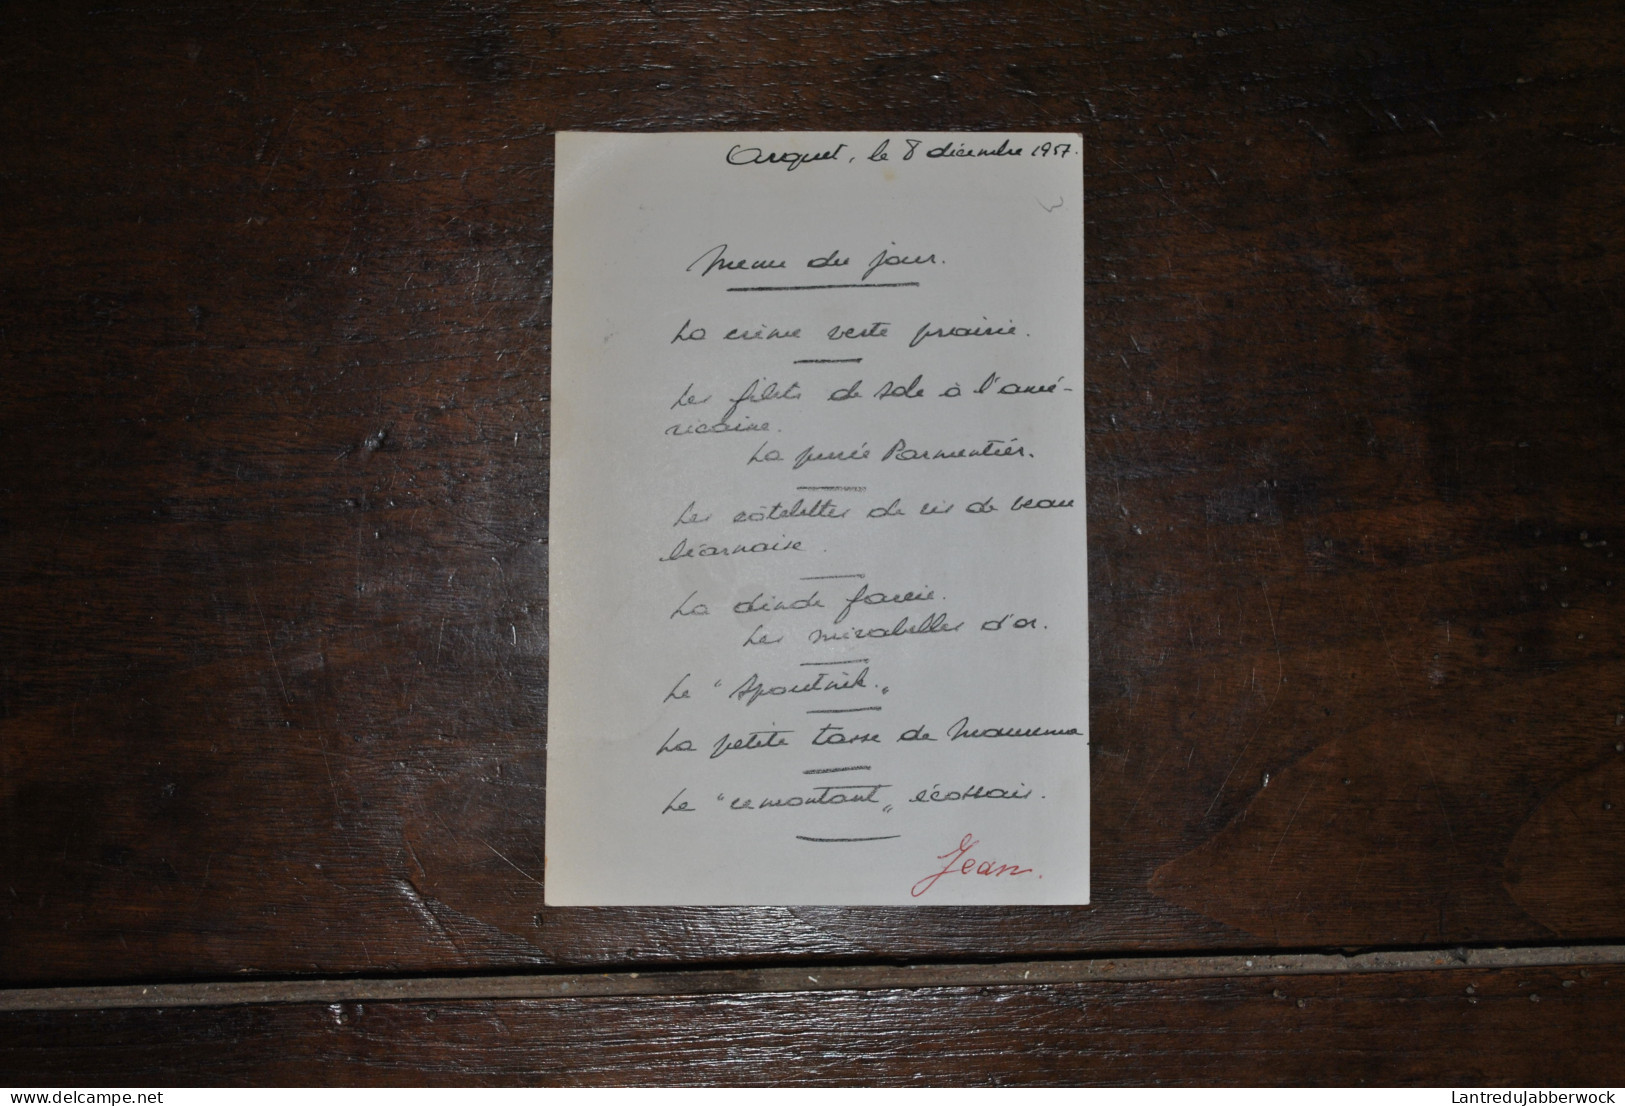 Arquet, le 8 décembre 1957.
Menu du jour.
La crème verte prairie.
Les filets de sole à l'amé-
ricaine.
La purée Parmentier.
Les côtelettes de ris de veau
béarnaise.
La dinde farcie.
Les mirabelles d'or.
Le "Spoutnik."
La petite tasse de Mamema
Le "remontant" écossais.
Jean.
delcampe.net
LantreduJabberwock